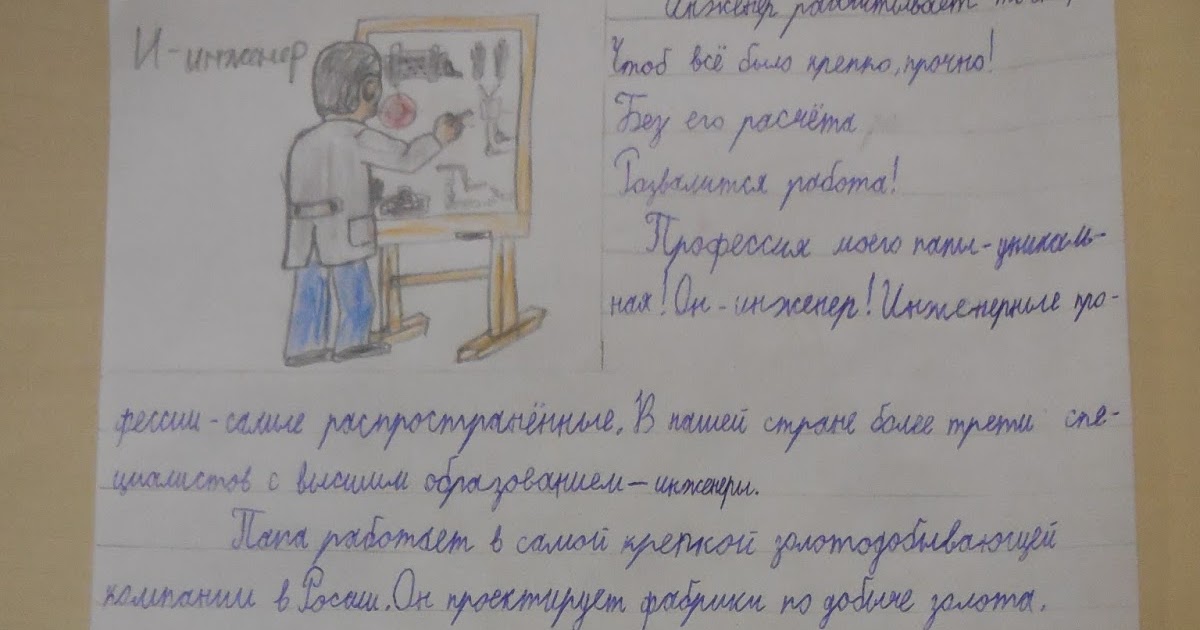 И-инженер
Инженер рассчитывает
Чтоб всё было крепко, прочно!
Без его расчёта
Развалится работа!
Профессия моего папы-уникаль-
ная! Он-инженер! Инженерные про-
фессии-самые распространённые. В нашей стране более трети спе-
циалистов с высшим образованием—инженеры.
Папа работает в самой крепкой золотодобывающей
компании в России. Он проектирует фабрики по добыче золота.